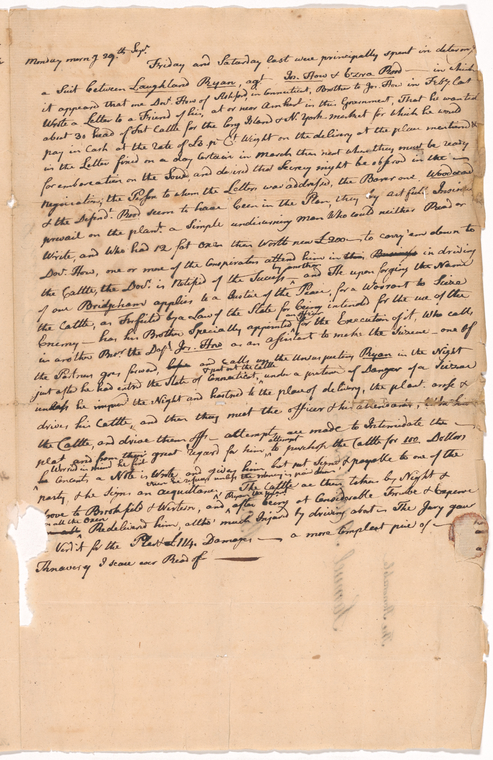 Monday morng 29th Sepr.
Friday and Saturday last were principally spent in determg
a Suit between Laughland Ryan, agt Jos. How & Ezra Rood — in which
it appeard that one Dnl. How of Ashford in Connecticut, Brother to Jos. How in Feby last
Wrote a Letter to a Friend of his, at or near Amherst in the Government, That he wanted
about 30 head of Fat Cattle for the Long Island & N. York market for which he would
pay in Cash at the Rate of Wright on the delivery at the place mentiond
in the Letter fixed on a day Certain in March then next when they must be ready
for embarcation on the Sound and desired that Secrecy might be observd in the
negociation, the Person to whom the Letter was addressd, the Bearer one Woodward
& the Defendt. Rood seem to have been in the Plan, they by artfull Insinuas
prevail on the plant. a Simple undiscerning man Who could neither Read or
Write, and Who had 12 fat Oxen then worth near £200 — to carry 'em down to
Dnl. How, one or more of the Conspirators attend him in driving
the Cattle, the is Notified of the Success by another and He upon forging the Name
of one Bridgham applies to a Justice of the Peace, for a Warrant to Seize
the Cattle, as forfeited by a Law of the State for being intended for the use of the
Enemy — has his Brother Specially appointed an officer for the Execution of it, Who calls
in another Bror. the Deft. Jos. How as an assistant to make the Seizure — one of
the Partners goes forward, and calls up the Unsuspecting Ryan in the Night
just after he had entrd the State of Connecticut, & put out the Cattle under a pretence of Danger of a Seizure
unless he improvd the Night and hastend to the place of delivery, the plant. arose &
drives his Cattle, and then they meet the officer & his attendants, Who Seize
the Cattle, and drive them off — attempts are made to Intimidate the
plat and from their great regard for him, attempt to purchase the Cattle for 100 Dollars
Worried in mind he first
he Consents, a Note is Wrote, and given him but not Signd & payable to one of the
even he refused unless the money is paid down
party, & he signs an acquittance. From the plant The Cattle are then taken by Night &
drove to Brookfield & Western, and after being at Considerable Trouble & Expence
all the Oxen Redeliverd him, altho' much Injurd by driving about — The Jury gave
Verdict for the Plat. £114. Damages — a more compleat piece of
Knavery I scarce ever Read of —